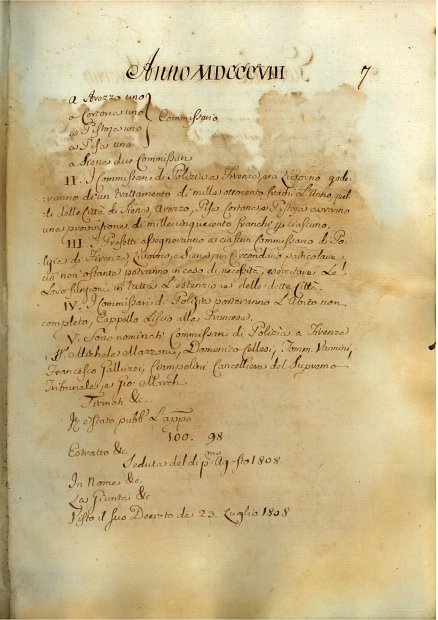 Anno MDCCCVIII 7
a Arezzo uno
a Cortona uno
a Pistoja uno Commissario
a Pisa uno
a Siena due Commissari
II. I Commissari di Polizia a Firenze, e a Livorno gode
ranno di un trattamento di mille ottocento franchi l'anno, quel
li delle Città di Siena, Arezzo, Pisa Cortona e Pistoja avranno
una provvisione di mille cinquecento franchi p. ciascuno,
III I Prefetti assegneranno a ciascun Commissario di Po-
lizia di Firenze Livorno, e Siena, un Circondario particolare
ciò non ostante potranno in caso di necessità, esercitare Le
Loro funzioni in tutta L'estenzione delle dette Città.
IV. I Commissari di Polizia porteranno L'Abito nero
completo, Cappello Liscio alla Francese.
V. Sono nominati Commissari di Polizia a Firenze
Michele Mazzoni, Domenico Cellesi, Tomm. Vannini,
Francesco Galluzzi, Ciampolini Cancelliere del Supremo
Tribunale, e Gio.
Firmati &c.
È stato pubb. L'app.
100. 98
Estratto &c
Seduta del dì p.mo Agosto 1808.
In Nome &c.
La Giunta &c
Visto il suo Decreto de 23. Luglio 1808